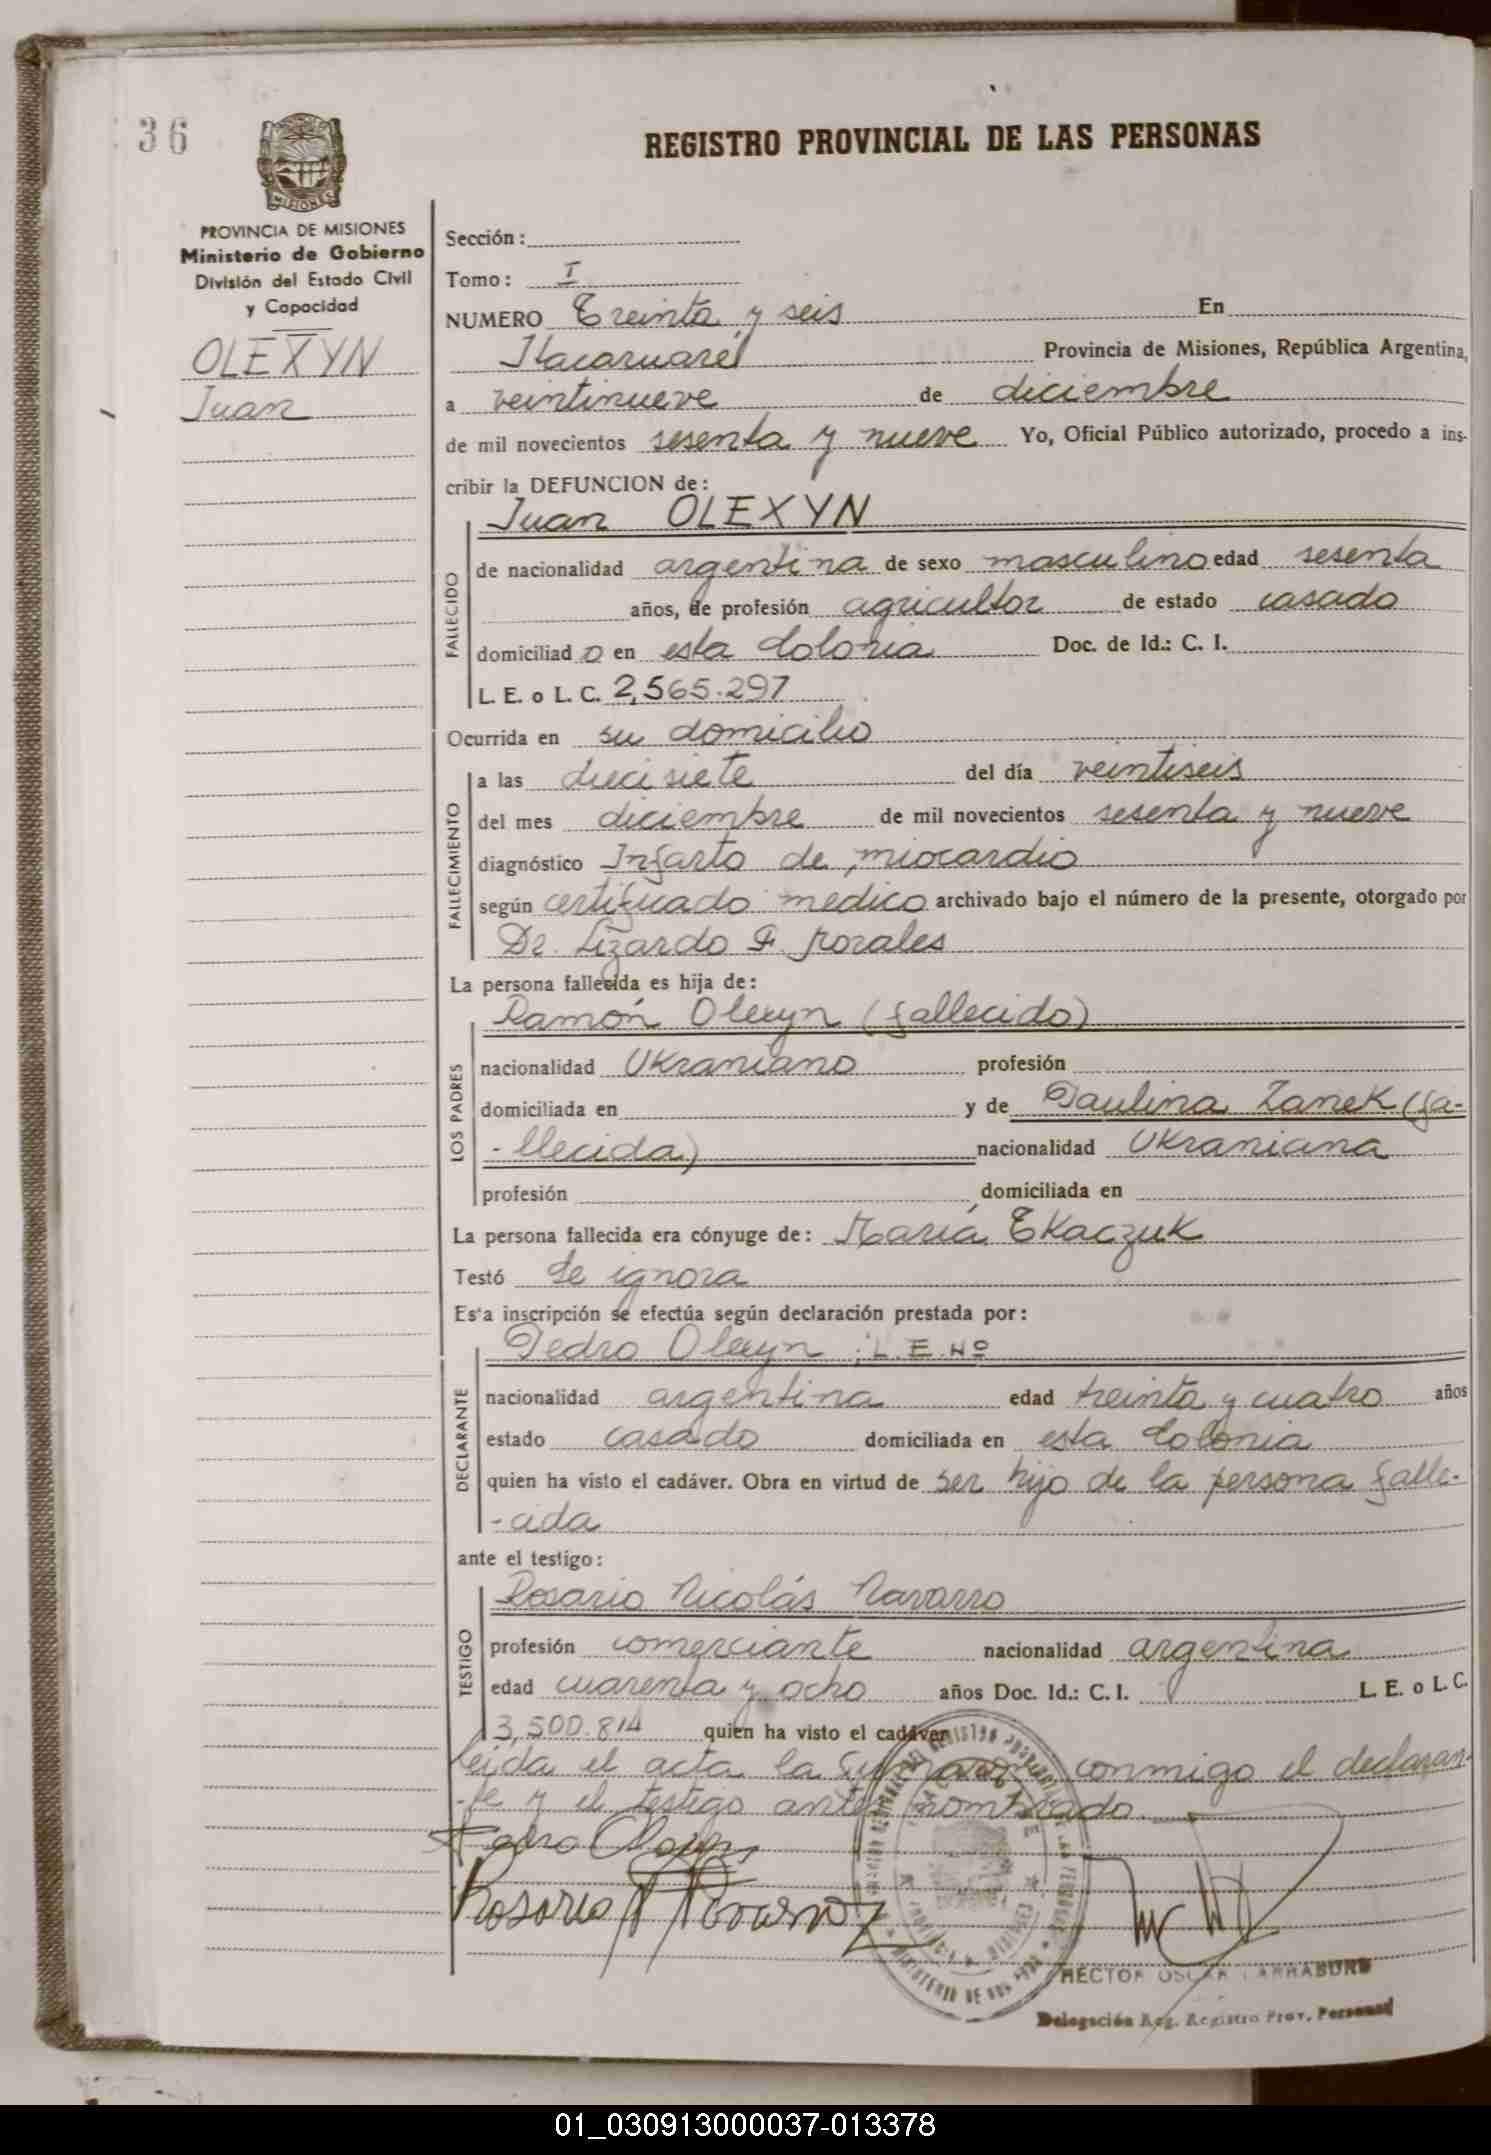 36
REGISTRO PROVINCIAL DE LAS PERSONAS
MISIONES
PROVINCIA DE MISIONES
Ministerio de Gobierno
División del Estado Civil
y Capacidad
OLEXYN
Juan
Sección:
Tomo: I
NUMERO Treinta y seis En
Itacaruaré Provincia de Misiones, República Argentina,
a veintinueve de diciembre
de mil novecientos sesenta y nueve Yo, Oficial Público autorizado, procedo a ins-
cribir la DEFUNCION de:
Juan OLEXYN
FALLECIDO
de nacionalidad argentina de sexo masculino edad sesenta
años, de profesión agricultor de estado casado
domiciliado en esta Colonia Doc. de Id.: C. I.
L. E. o L. C. 2,565.297
Ocurrida en su domicilio
FALLECIMIENTO
a las diecisiete del día veintiseis
del mes diciembre de mil novecientos sesenta y nueve
diagnóstico Infarto de miocardio
según certificado medico archivado bajo el número de la presente, otorgado por
Dr. Lizardo F. Morales
La persona fallecida es hija de:
Ramón Olexyn (fallecido)
LOS PADRES
nacionalidad Ukraniano profesión
domiciliada en y de Paulina Zanek (fa-
-llecida) nacionalidad Ukraniana
profesión domiciliada en
La persona fallecida era cónyuge de: María Tkaczuk
Testó Se ignora
Esta inscripción se efectúa según declaración prestada por:
Pedro Olexyn ; L. E. Nº
DECLARANTE
nacionalidad argentina edad treinta y cuatro años
estado casado domiciliada en esta Colonia
quien ha visto el cadáver. Obra en virtud de ser hijo de la persona falle-
-cida
ante el testigo:
Rosario Nicolás Navarro
TESTIGO
profesión comerciante nacionalidad argentina
edad cuarenta y ocho años Doc. Id.: C. I. L. E. o L. C.
3,500.814 quien ha visto el cadáver
Leida el acta la conmigo el declaran-
-te y el testigo antes nombrado
Pedro Olexyn
Rosario N Navarro
HECTOR OSCAR LARRABURE
Delegación Reg. Registro Prov. Personas
01_030913000037-013378